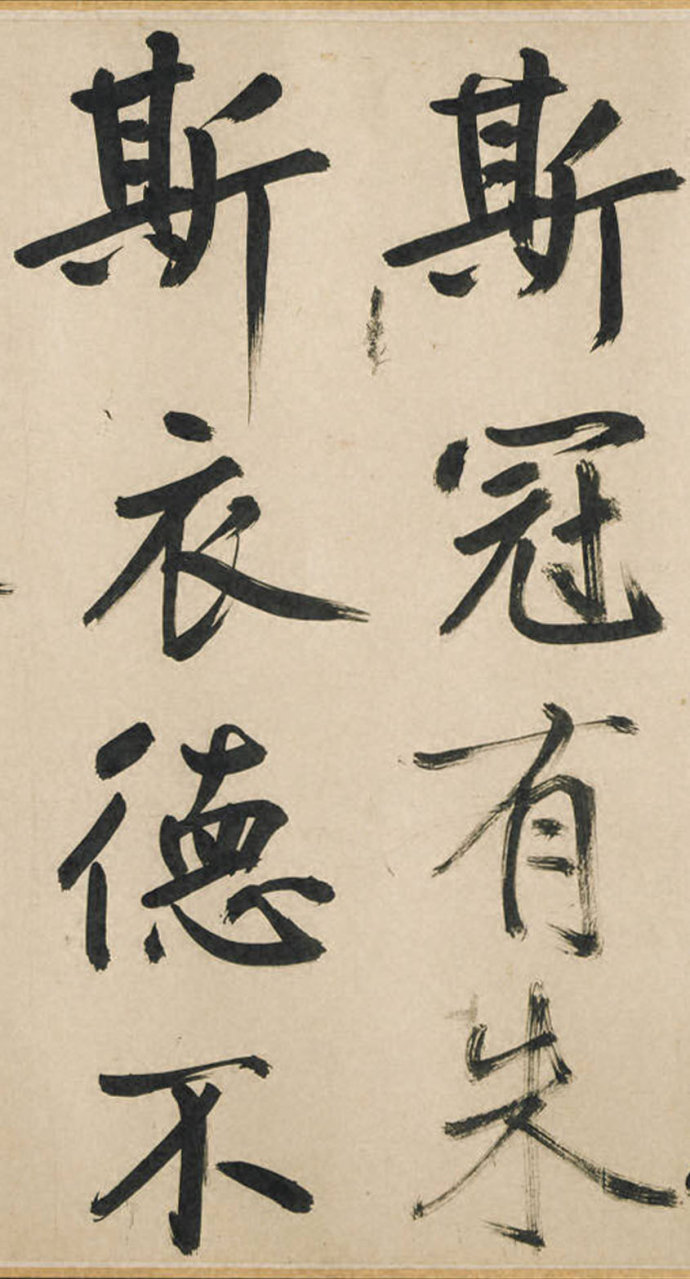 斯冠有朱
斯衣德不